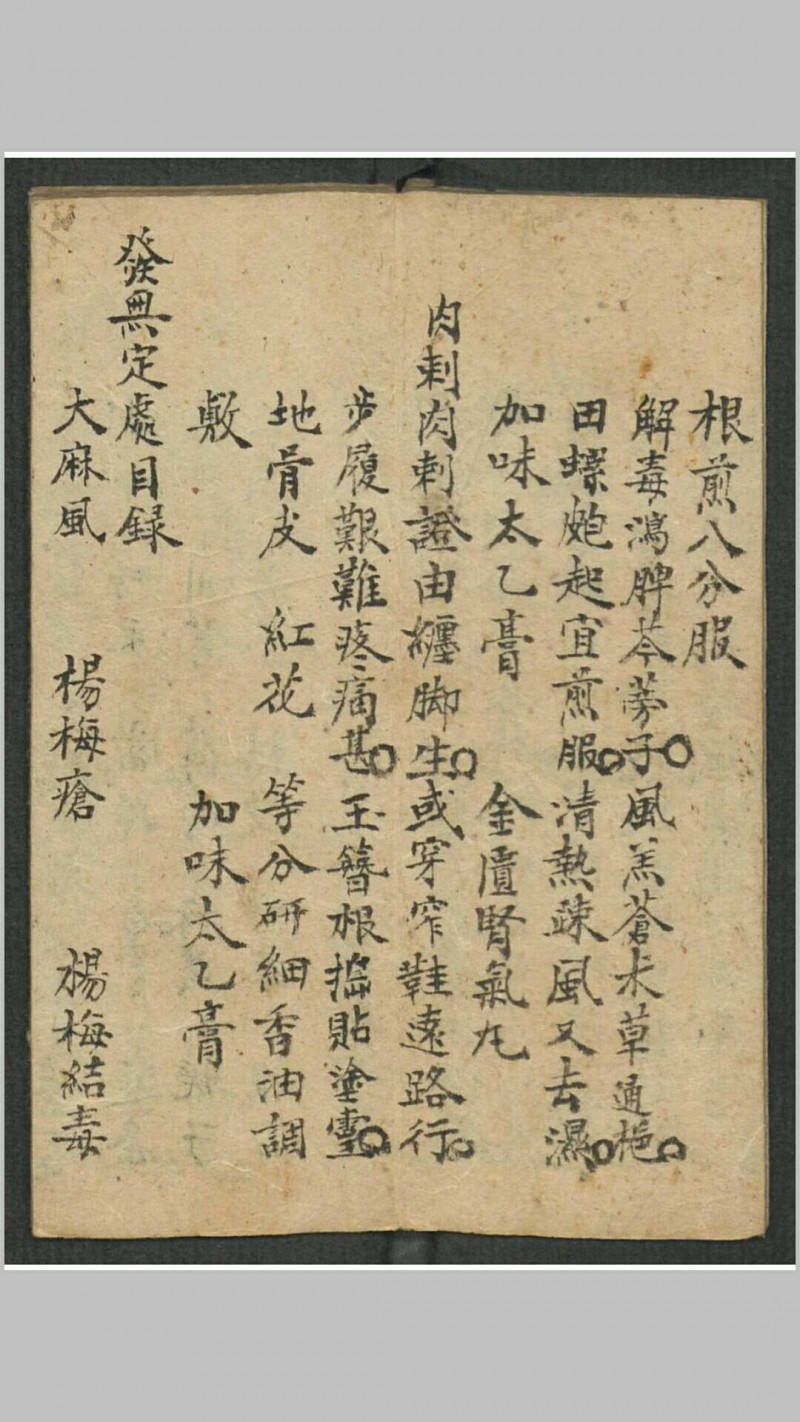 根煎八分服
解毒瀉脾芩蒡子風羔蒼朮草通梔
田螺皰起宜煎服清熱疎風又去濕
加味太乙膏 金匱腎氣丸
肉刺肉刺證由纏脚生或穿窄鞋遠路行
步履艱難疼痛甚玉簪根搗貼塗靈
地骨皮 紅花 等分研細香油調
敷 加味太乙膏
發無定處目録
大麻風 楊梅瘡 楊梅結毒